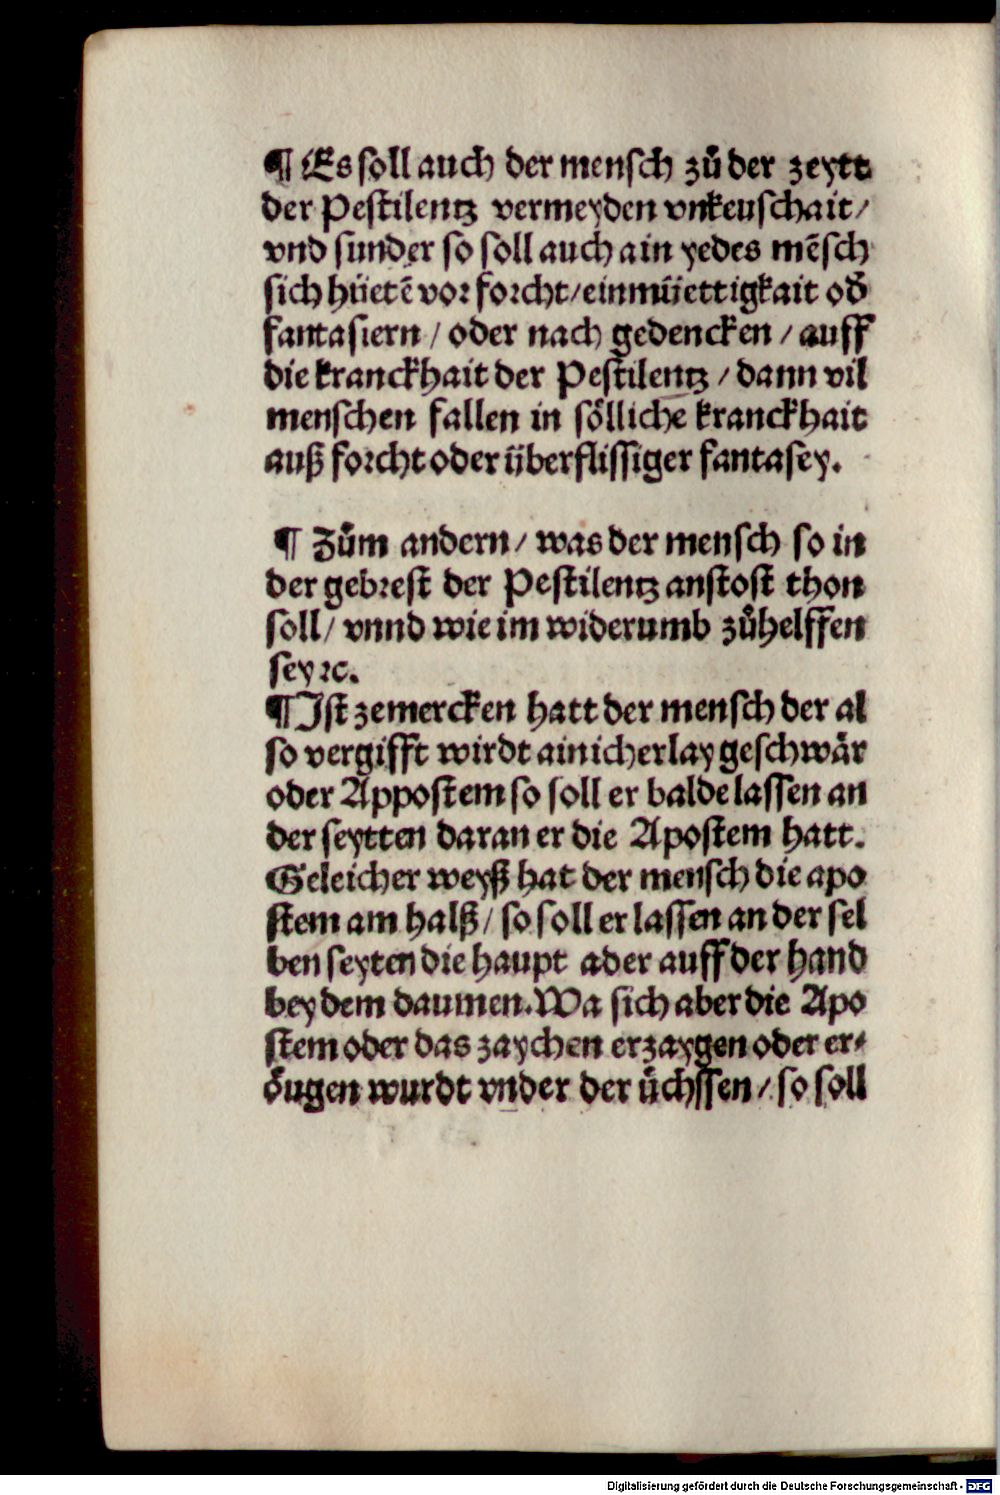 ¶ Es soll auch der mensch zů der zeytt
der Pestilentz vermeyden vnkeuschait /
vnd sunder so soll auch ain yedes mēsch
sich hüetē vor forcht / einmüettigkait od̕
fantasiern / oder nach gedencken / auff
die kranckhait der Pestilentz / dann vil
menschen fallen in sölliche kranckhait
auß forcht oder überflissiger fantasey.
¶ Zům andern / was der mensch so in
der gebrest der Pestilentz anstost thon
soll / vnnd wie im widerumb zůhelffen
sey ꝛc.
¶ Ist zemercken hatt der mensch der al
so vergifft wirdt ainicherlay geschwär
oder Appostem so soll er balde lassen an
der seytten daran er die Apostem hatt.
Geleicher weyß hat der mensch die apo
stem am halß / so soll er lassen an der sel
ben seyten die haupt ader auff der hand
bey dem daumen. Wa sich aber die Apo
stem oder das zaychen erzaygen oder er⸗
öugen wurdt vnder der üchssen / so soll
Digitalisierung gefördert durch die Deutsche Forschungsgemeinschaft - DFG